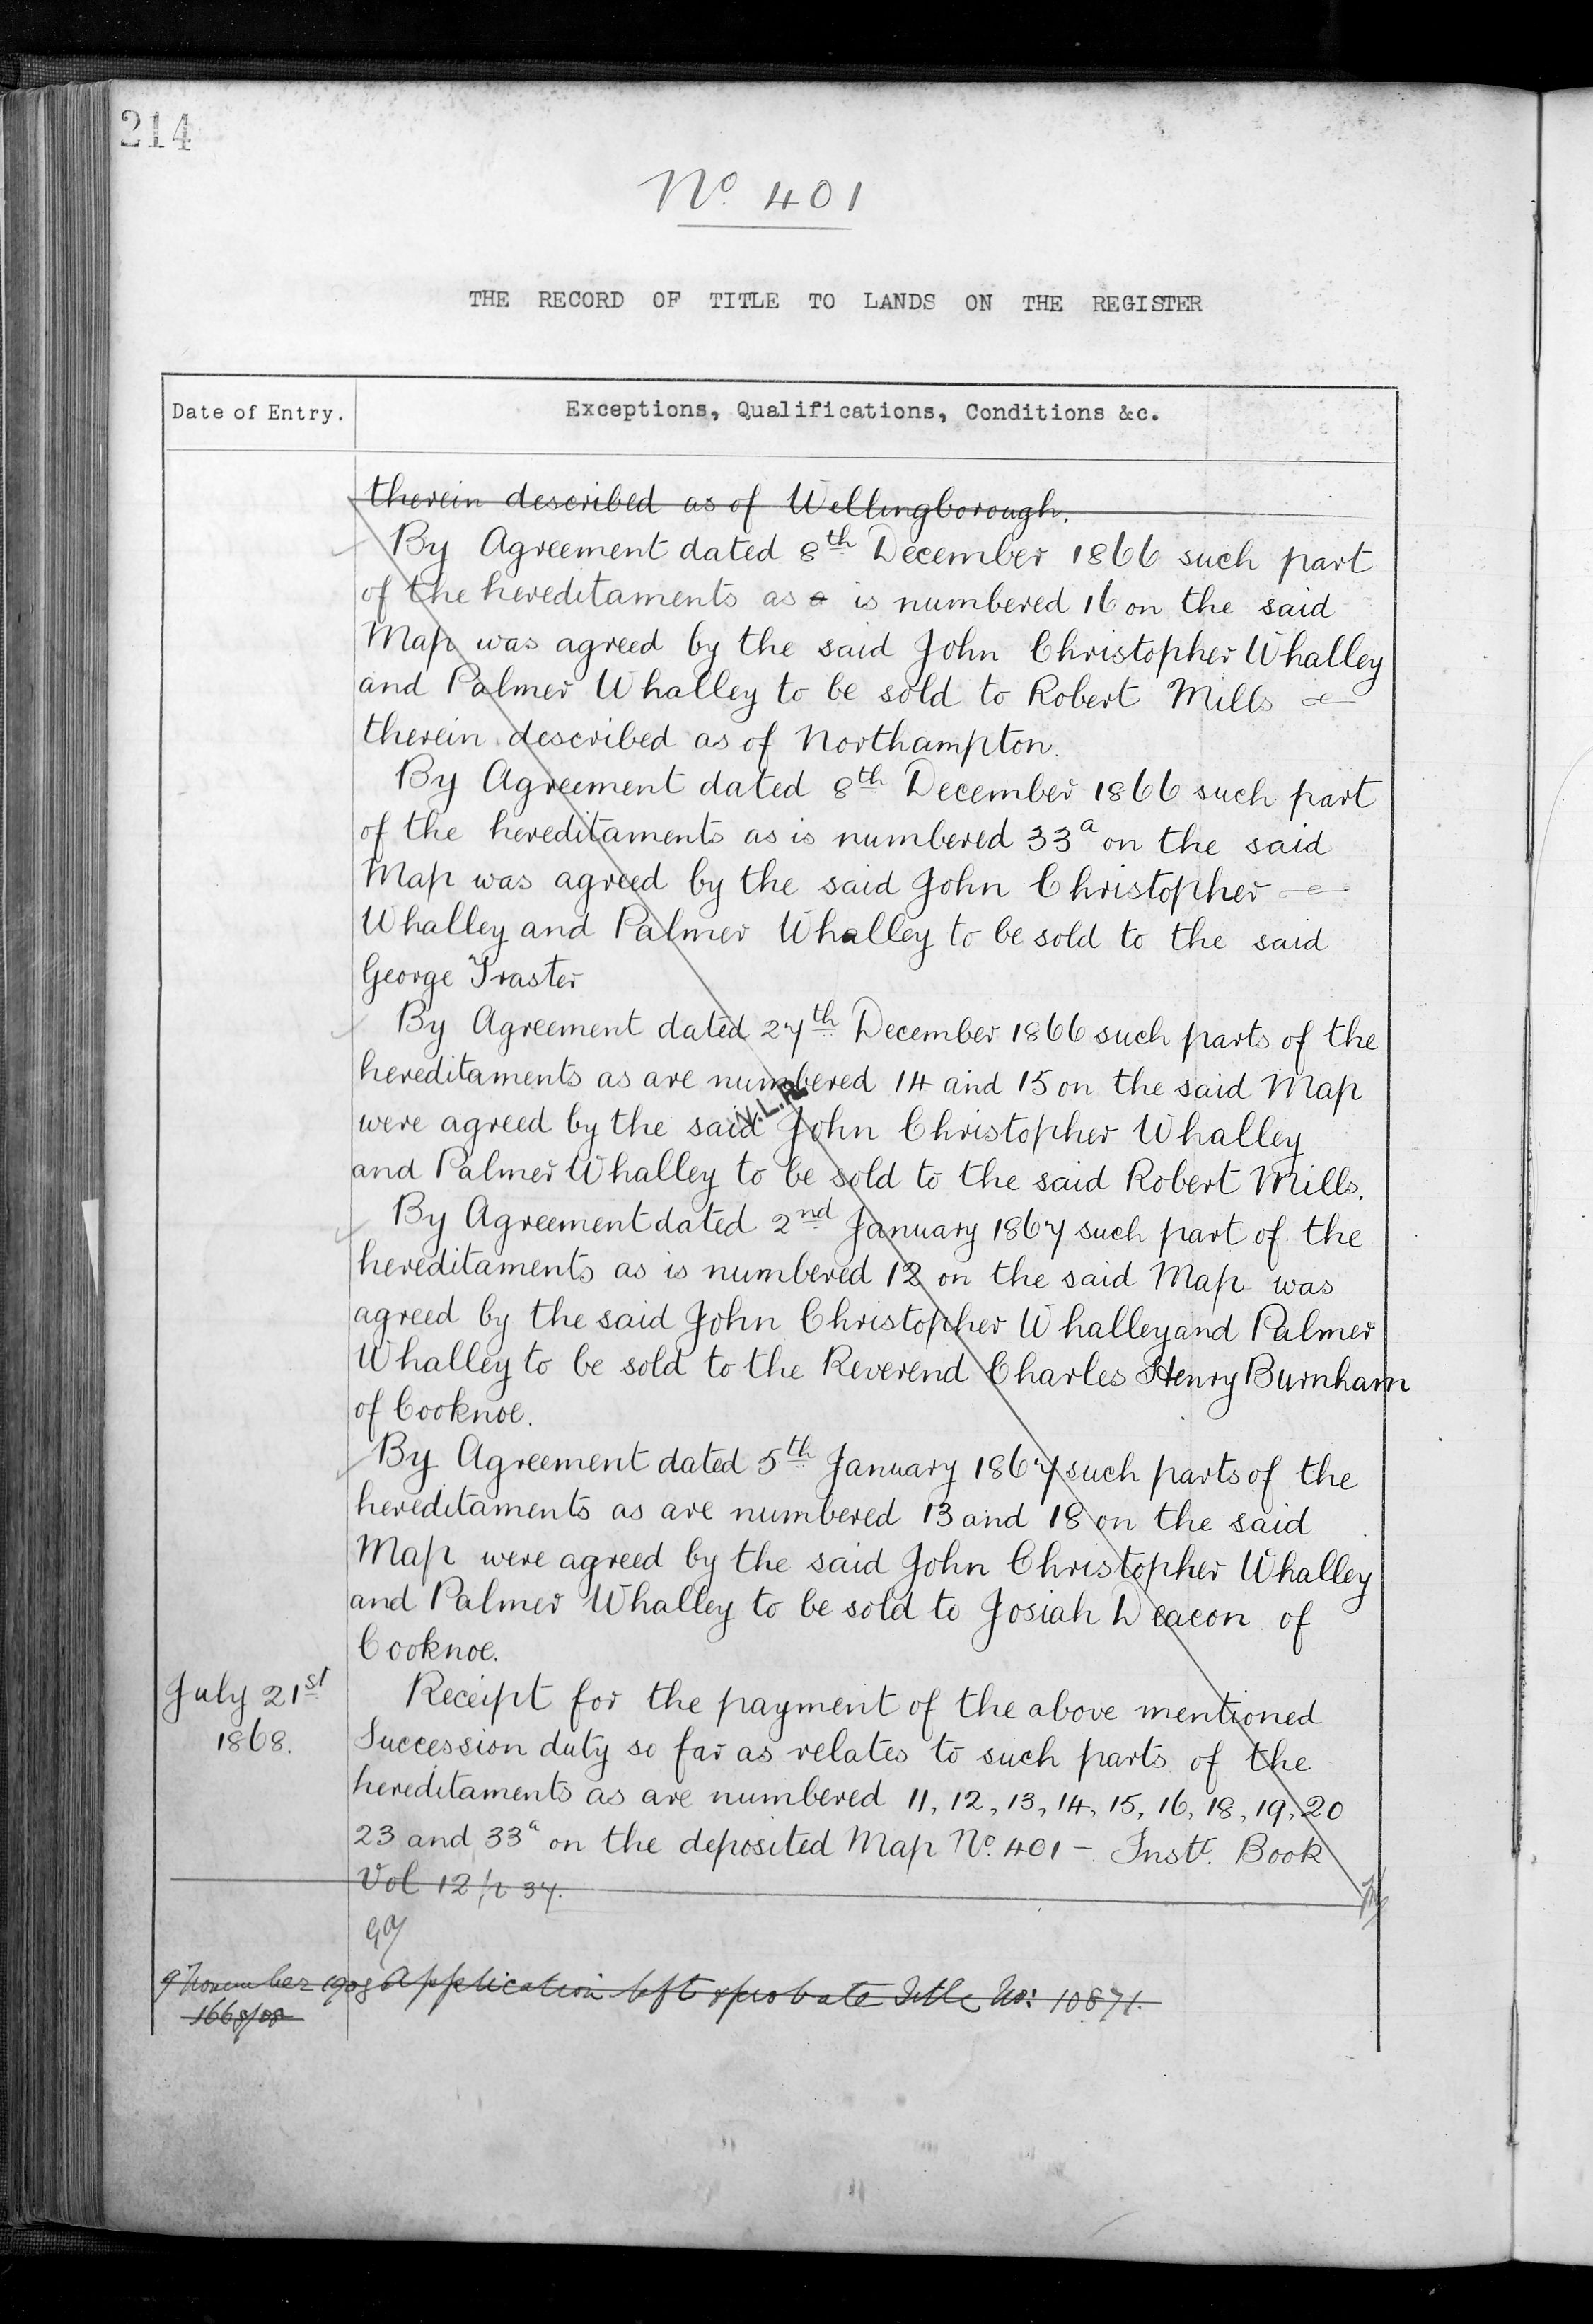 214
No. 401
THE RECORD OF TITLE TO LANDS ON THE REGISTER
Date of Entry.
Exceptions, Qualifications, Conditions &c.
therein described as of Wellingborough.
By Agreement dated 8th December 1866 such part
of the hereditaments as a is numbered 16 on the said
Map was agreed by the said John Christopher Whalley
and Palmer Whalley to be sold to Robert Mills
therein described as of Northampton.
By Agreement dated 8th December 1866 such part
of the hereditaments as is numbered 33a on the said
Map was agreed by the said John Christopher
Whalley and Palmer Whalley to be sold to the said
George Traster
By Agreement dated 27th December 1866 such parts of the
hereditaments as are numbered 14 and 15 on the said Map
V.L.R.
were agreed by the said John Christopher Whalley
and Palmer Whalley to be sold to the said Robert Mills.
By Agreement dated 2nd January 1867 such part of the
hereditaments as is numbered 12 on the said Map was
agreed by the said John Christopher Whalley and Palmer
Whalley to be sold to the Reverend Charles Henry Burnham
of Cooknoe.
By Agreement dated 5th January 1867 such parts of the
hereditaments as are numbered 13 and 18 on the said
Map were agreed by the said John Christopher Whalley
and Palmer Whalley to be sold to Josiah Deacon of
Cooknoe.
July 21st
1868.
Receipt for the payment of the above mentioned
Succession duty so far as relates to such parts of the
hereditaments as are numbered 11, 12, 13, 14, 15, 16, 18, 19, 20
23 and 33a on the deposited Map No. 401 - Instt. Book
Vol 12 p 37.
9 November 1908 Application left probate Title No: 10871.
1668/08